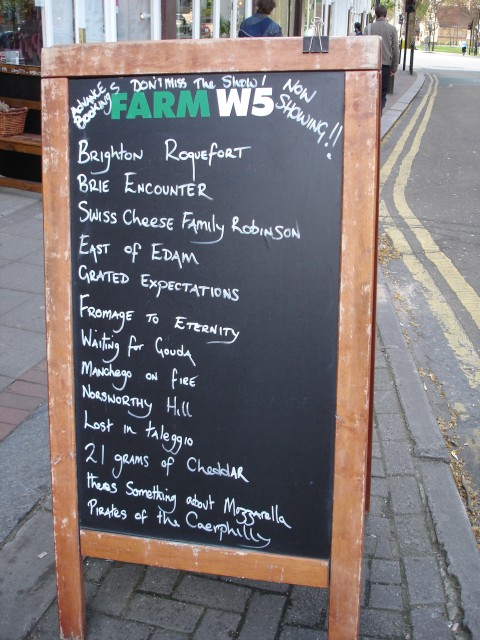 ADVANCE BOOKINGS DON'T MISS THE SHOW! NOW SHOWING!!
FARM W5
BRIGHTON ROQUEFORT
BRIE ENCOUNTER
SWISS CHEESE FAMILY ROBINSON
EAST OF EDAM
GRATED EXPECTATIONS
FROMAGE TO ETERNITY
WAITING FOR GOUDA
MANCHEGO ON FIRE
NORSWORTHY Hill
LOST IN TALEGGIO
21 GRAMS OF CHEDDAR
Theres Something about Mozzarella
PIRATES OF THE CAERPHILLY